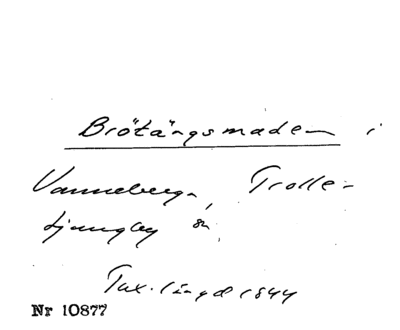 Brötängsmaden i
Vanneberga, Trolle-
Ljungby sn.
Tax. längd 1844
Nr 10877